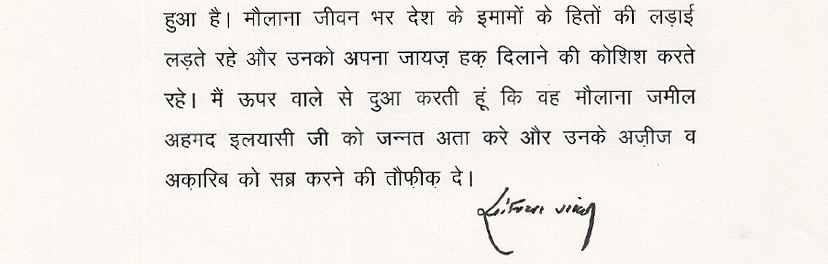 हुआ है। मौलाना जीवन भर देश के इमामों के हितों की लड़ाई
लड़ते रहे और उनको अपना जायज़ हक़ दिलाने की कोशिश करते
रहे। मैं ऊपर वाले से दुआ करती हूं कि वह मौलाना जमील
अहमद इलयासी जी को जन्नत अता करे और उनके अज़ीज व
अक़ारिब को सब्र करने की तौफ़ीक़ दे।